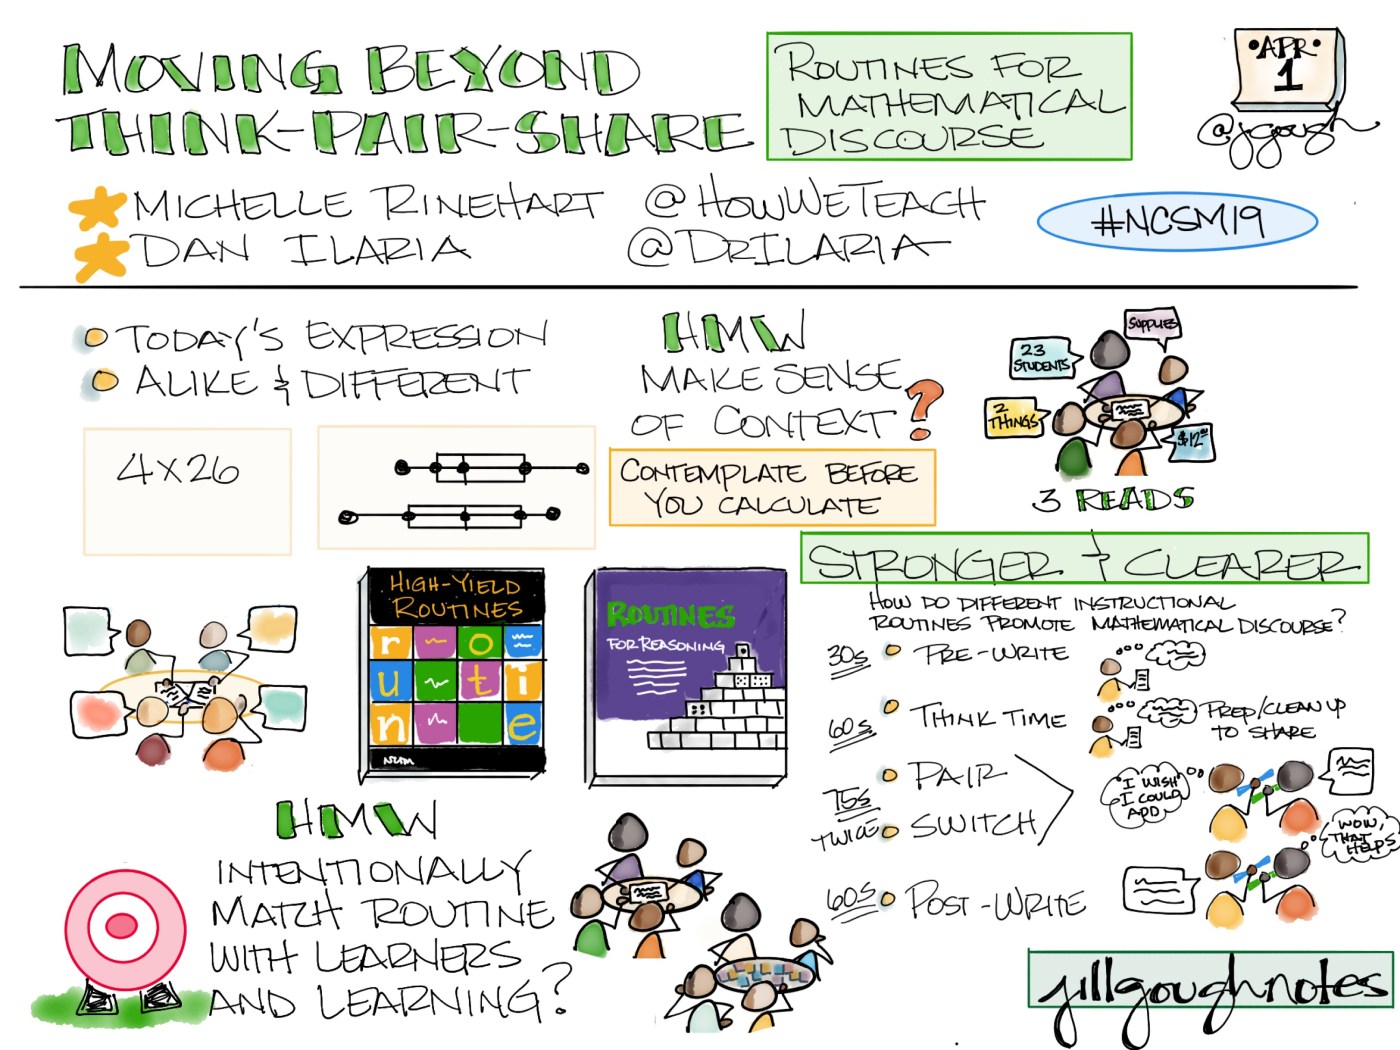 MOVING BEYOND
THINK-PAIR-SHARE
ROUTINES FOR
MATHEMATICAL
DISCOURSE
•APR•
1
@jgough
MICHELLE RINEHART @HOWWETEACH
DAN ILARIA @DRILARIA
#NCSM19
TODAY'S EXPRESSION
ALIKE & DIFFERENT
4X26
HMW
MAKE SENSE
OF CONTEXT?
CONTEMPLATE BEFORE
YOU CALCULATE
SUPPLIES
23
STUDENTS
2
THINGS
$12⁰⁰
3 READS
HIGH-YIELD
ROUTINES
r o
u t i
n e
NCTM
ROUTINES
FOR REASONING
STRONGER & CLEARER
HOW DO DIFFERENT INSTRUCTIONAL
ROUTINES PROMOTE MATHEMATICAL DISCOURSE?
30s PRE-WRITE
60s THINK TIME
PREP/CLEAN UP
TO SHARE
75s PAIR
TWICE SWITCH
I WISH
I COULD
ADD
WOW,
THAT
HELPS
60s POST-WRITE
HMW
INTENTIONALLY
MATCH ROUTINE
WITH LEARNERS
AND LEARNING?
jillgoughnotes